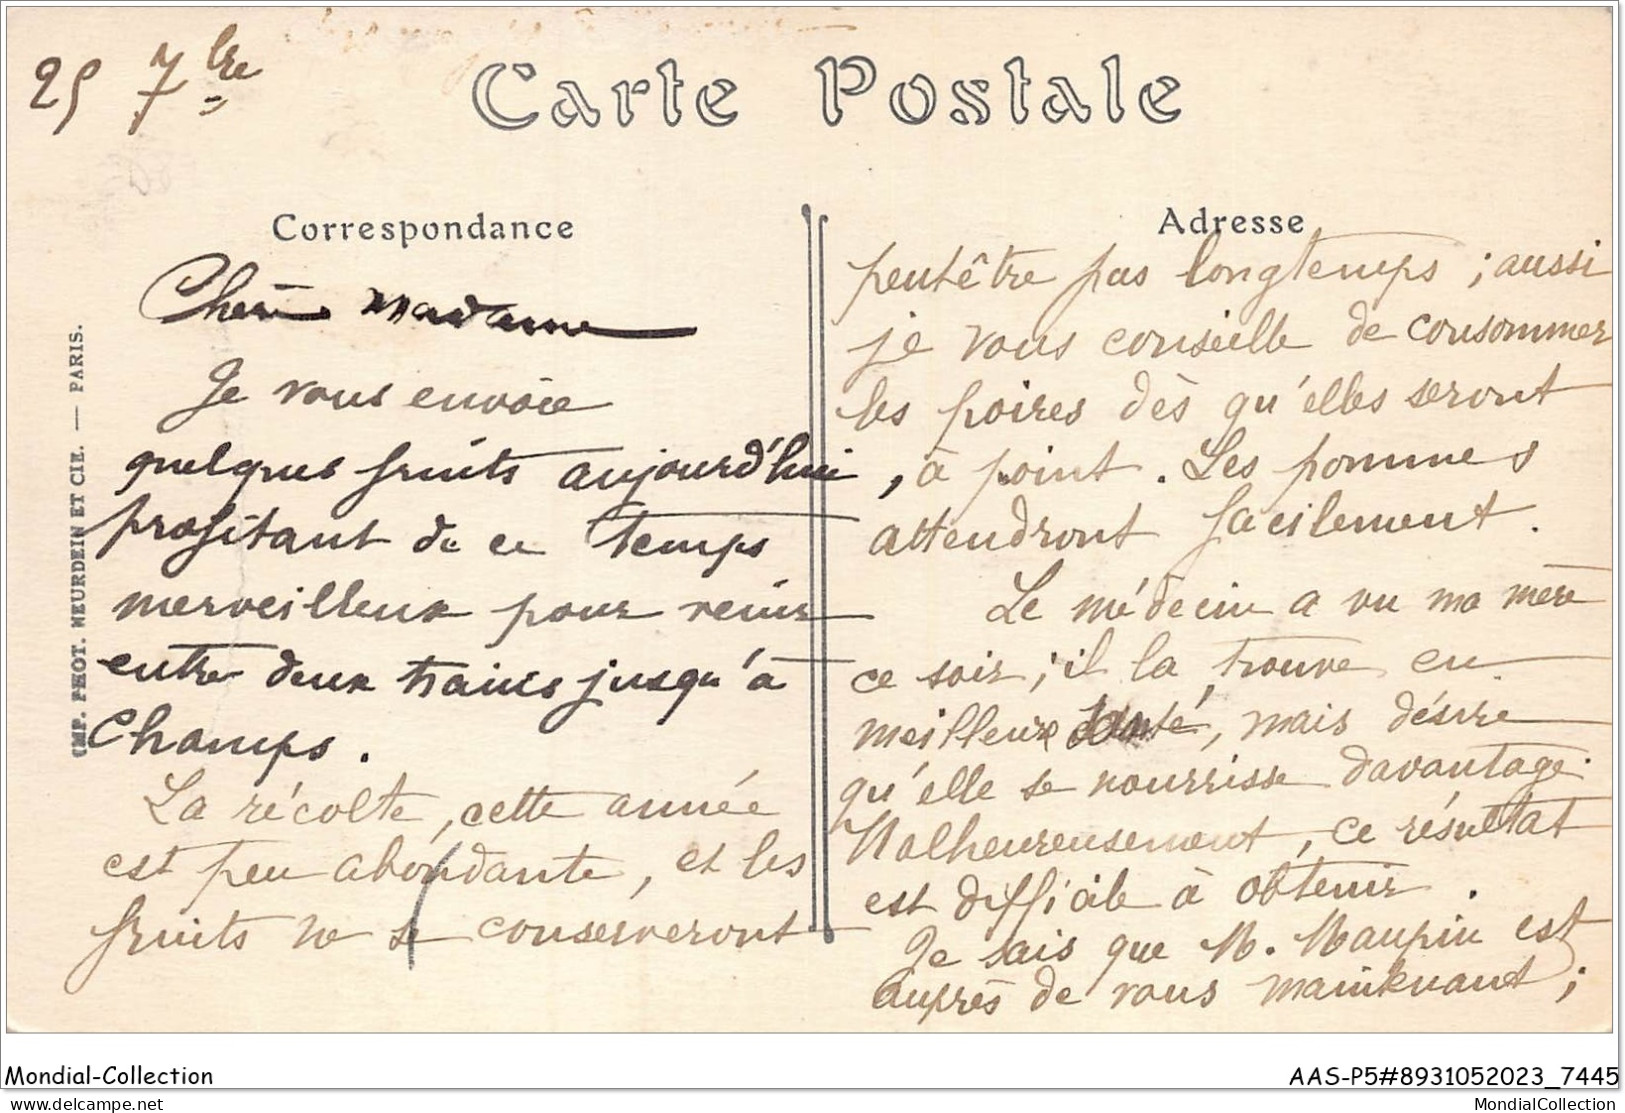 25 7bre
Carte Postale
Correspondance
Chère Madame
Je vous envoie
quelques fruits aujourd'hui,
profitant de ce temps
merveilleux pour venir
entre deux trains jusqu'à
Champs.
La récolte, cette année
est peu abondante, et les
fruits ne se conserveront
Adresse
peutêtre pas longtemps ; aussi
je vous conseille de consommer
les poires dès qu'elles seront
à point. Les pommes
attendront facilement.
Le médecin a vu ma mère
ce soir ; il la trouve en
meilleure santé, mais désire
qu'elle se nourrisse davantage.
Malheureusement, ce résultat
est difficile à obtenir.
Je sais que M. Maupin est
auprès de vous maintenant ;
IMP. PHOT. NEURDEIN ET CIE. — PARIS.
Mondial-Collection
AAS-P5#8931052023_7445
delcampe.net
MondialCollection